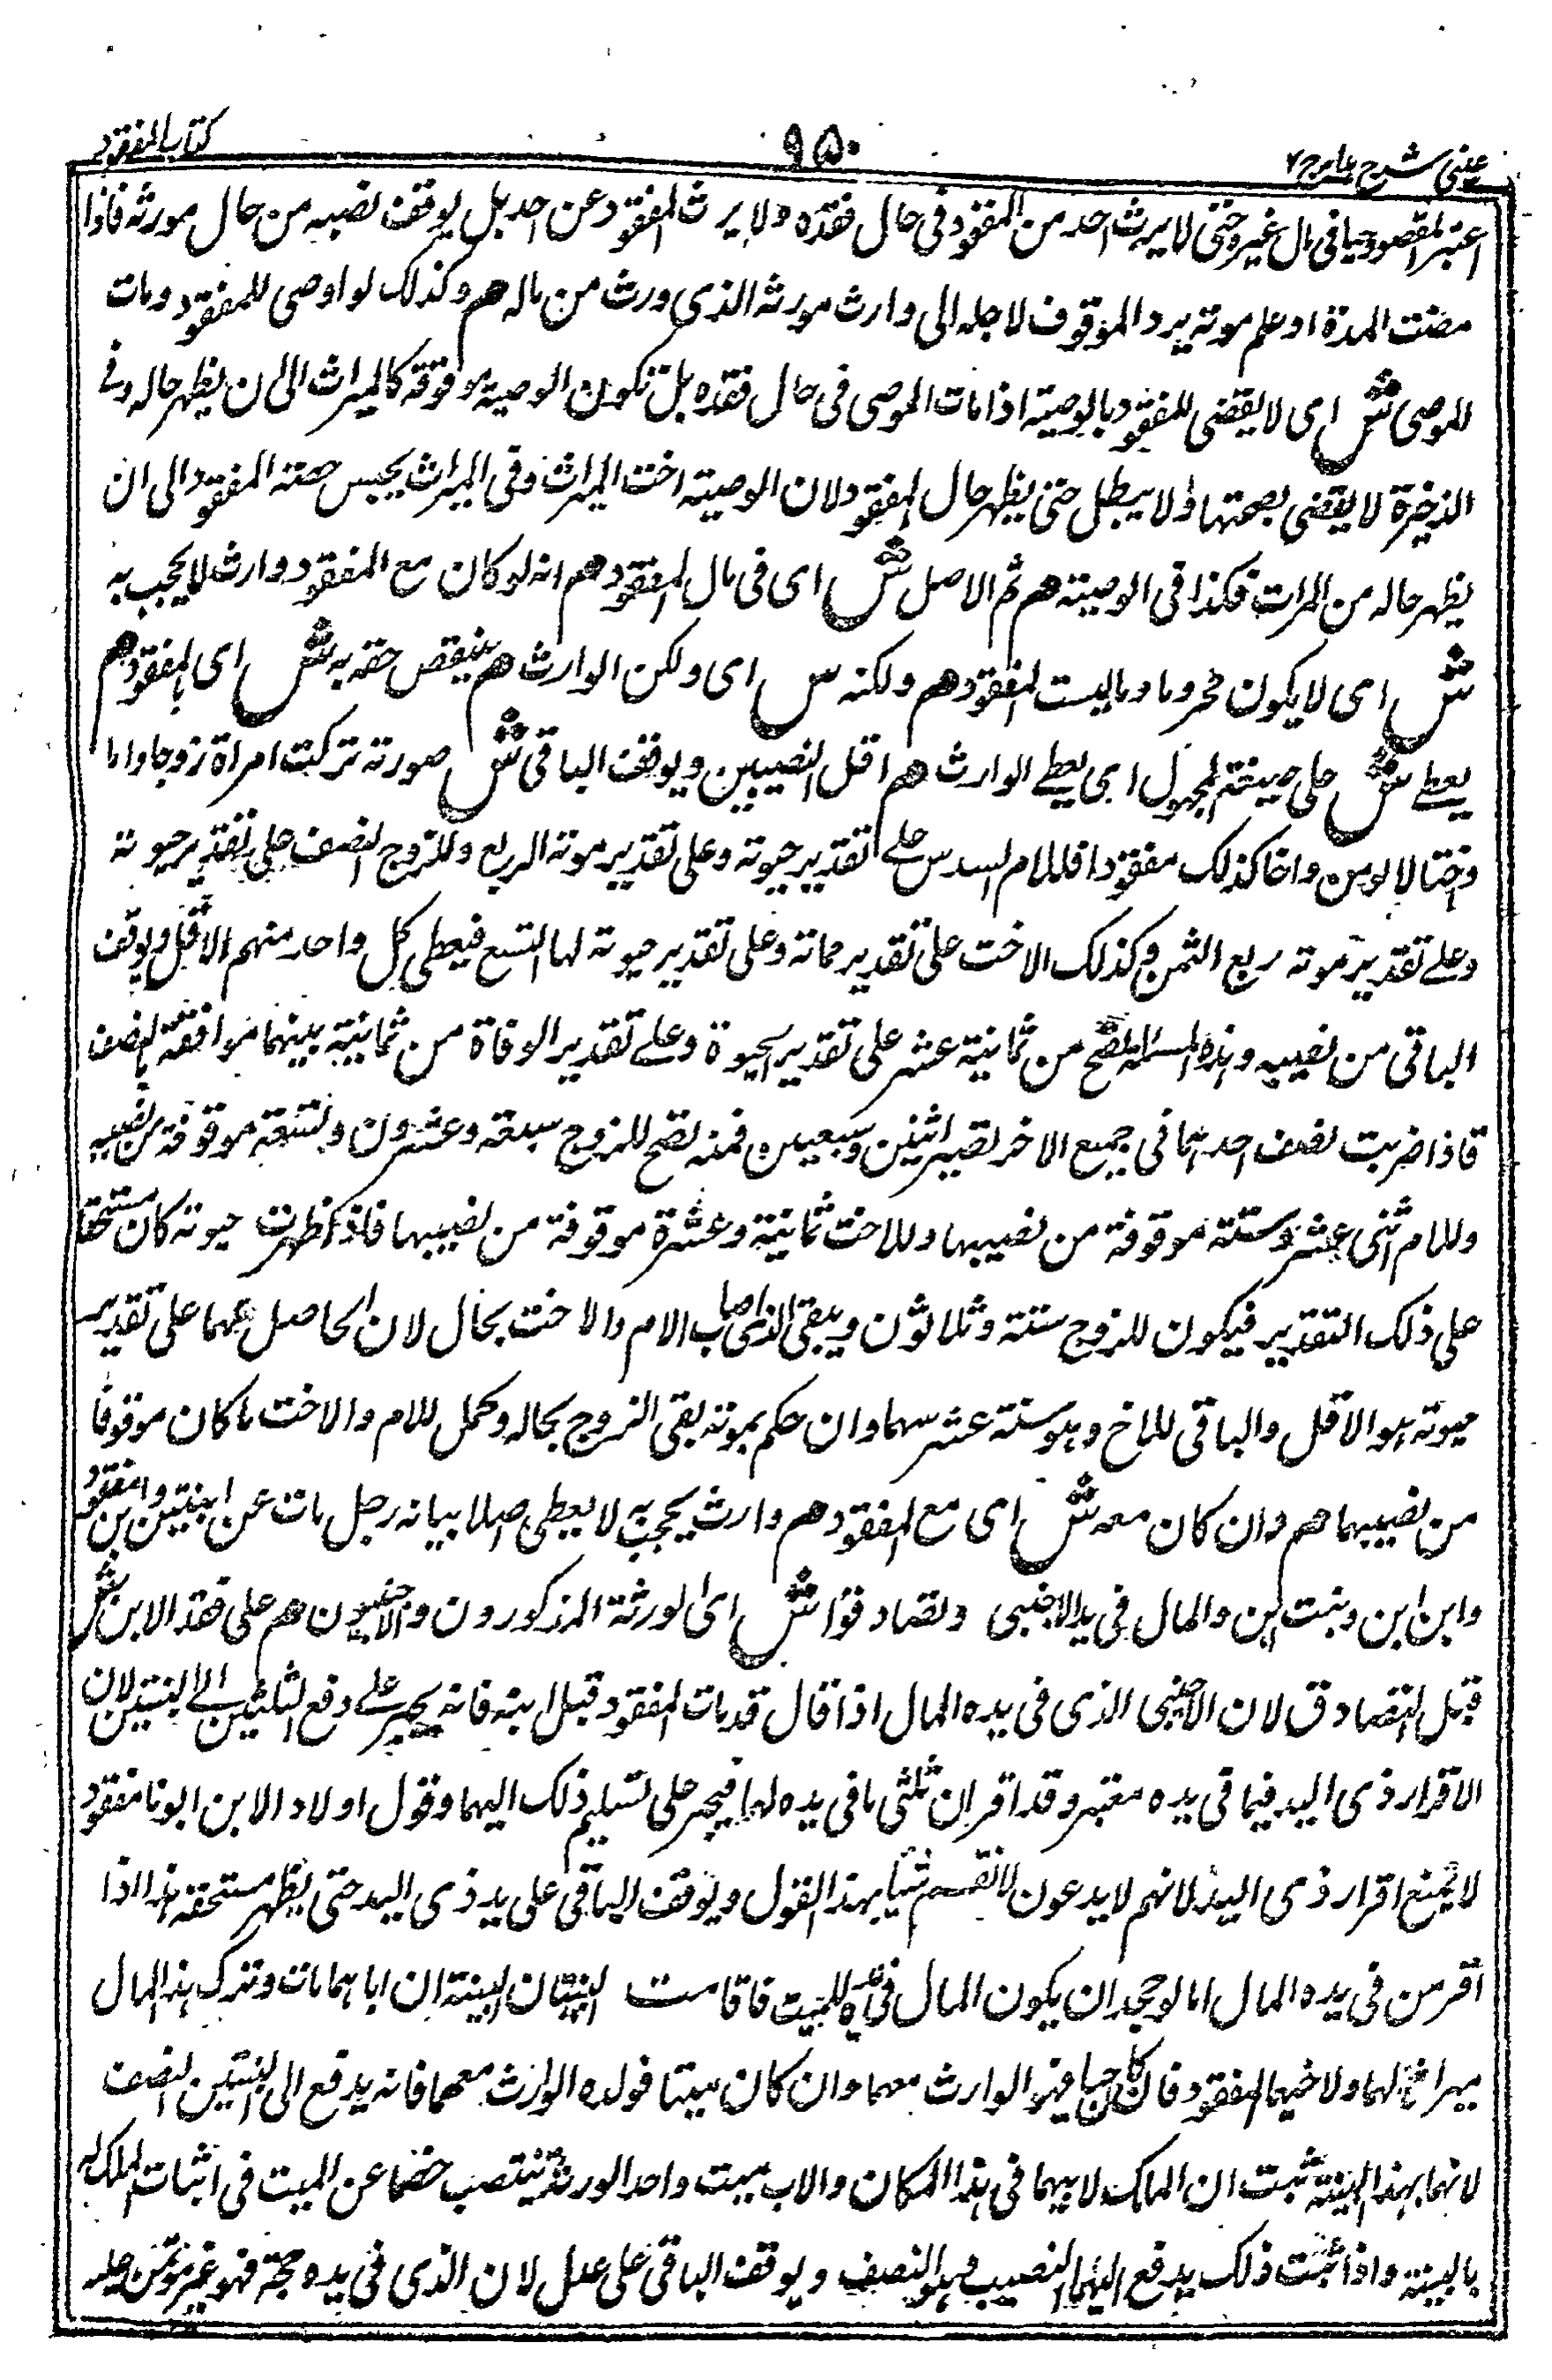 عینی شرح ہدایہ ج ۲
۹۵۰
کتاب المفقود
اعتبر المقصود حیا فی مال غیرہ حتی لا یرث احد من المفقود فی حال فقدہ ولا یرث المفقود عن احد بل یوقف نصیبہ من حال مورثہ فاذا
مضت المدۃ او علم موتہ یرد الموقوف لاجلہ الی وارث مورثہ الذی ورث من مالہ ھم وکذلک لو اوصی للمفقود ومات
للموصی ش ای لا یقضی للمفقود بالوصیۃ اذا مات الموصی فی حال فقدہ بل تکون الوصیۃ موقوفۃ کالمیراث الی ان یظہر حالہ وفی
الذخیرۃ لا یقضی بصحتہا ولا یبطل حتی یظہر حال المفقود لان الوصیۃ اخت المیراث وفی المیراث یحبس حصۃ المفقود الی ان
یظہر حالہ من المراث فکذا فی الوصیۃ ھم ثم الاصل ش ای فی مال المفقود ھم انہ لو کان مع المفقود وارث لا یحجب بہ
ش ای لا یکون محروما ومالیست المفقود ھم ولکنہ س ای ولکن الوارث ھم ینتقص حقہ بہ ش ای بالمفقود ھم
یعطے ش علی صیغۃ المجہول ای یعطے الوارث ھم اقل النصیبین ویوقف الباقی ش صورتہ ترکت امراۃ زوجا واما
واختا لابوین واخا کذلک مفقودا فللام السدس علے تقدیر حیوتہ وعلی تقدیر موتہ الربع وللزوج النصف علی تقدیر حیوتہ
وعلے تقدیر موتہ ربع الثمن وکذلک الاخت علی تقدیر مماتہ وعلی تقدیر حیوتہ لہا التسع فیعطی کل واحد منہم الاقل ویوقف
الباقی من نصیبہ وہذہ المسئلۃ تصح من ثمانیۃ عشر علی تقدیر الحیوۃ وعلے تقدیر الوفاۃ من ثمانیۃ بینہما موافقۃ بالنصف
فاذا ضربت نصف احدہما فی جمیع الاخر تصیر اثنین وسبعین فمنہ تصح للزوج سبعۃ وعشرون وتسعۃ موقوفۃ من نصیبہ
وللام اثنی عشر وستۃ موقوفۃ من نصیبہا وللاخت ثمانیۃ وعشرۃ موقوفۃ من نصیبہا فاذا ظہرت حیوتہ کان مستحقا
علی ذلک التقدیر فیکون للزوج ستۃ وثلاثون ویبقی الذی اصاب الام والاخت بحال لان الحاصل عہما علی تقدیر
حیوتہ ہو الاقل والباقی للاخ وہو ستۃ عشر سہما وان حکم بموتہ بقی الزوج بحالہ وکمل للام والاخت ما کان موقوفا
من نصیبہما ھم وان کان معہ ش ای مع المفقود ھم وارث یحجب بہ لا یعطی اصلا بیانہ رجل مات عن ابنتین وابن مفقود
وابن ابن وبنت ابن والمال فی ید الاجنبی وتصادقوا ش ای الورثۃ المذکورون والاجنبیون ھم علی فقد الابن ش
قبل التصادق لان الاجنبی الذی فی یدہ المال اذا قال قد مات المفقود قبل ابیہ فانہ یجبر علے دفع الثلثین الے البنتین لان
الاقرار ذی الید فیما فی یدہ معتبر وقد اقر ان ثلثی ما فی یدہ لہما فیجبر علی تسلیم ذلک الیہما وقول اولاد الابن ابونا مفقود
لا یمنع اقرار ذی الید لانہم لا یدعون لانفسہم شیا بہذا القول ویوقف الباقی علی ید ذی الید حتی یظہر مستحقہ ہذا اذا
اقر من فی یدہ المال اما لو جحد ان یکون المال فی یدہ للمیت فاقامت البنتان البینۃ ان اباہما مات وترک ہذا المال
میراثا لہما ولاخیہما المفقود فان کان حیا فہو الوارث معہما وان کان میتا فولدہ الوارث معہما فانہ یدفع الی البنتین النصف
لانہما بہذا البینۃ ثبت ان الملک لابیہما فی ہذا المکان والاب میت واحد الورثۃ ینتصب خصما عن المیت فی اثبات الملک لہ
بالبینۃ واذا ثبت ذلک یدفع الیہما النصیب وہو النصف ویوقف الباقی علی عدل لان الذی فی یدہ حجۃ فہو غیر مؤتمن علیہ